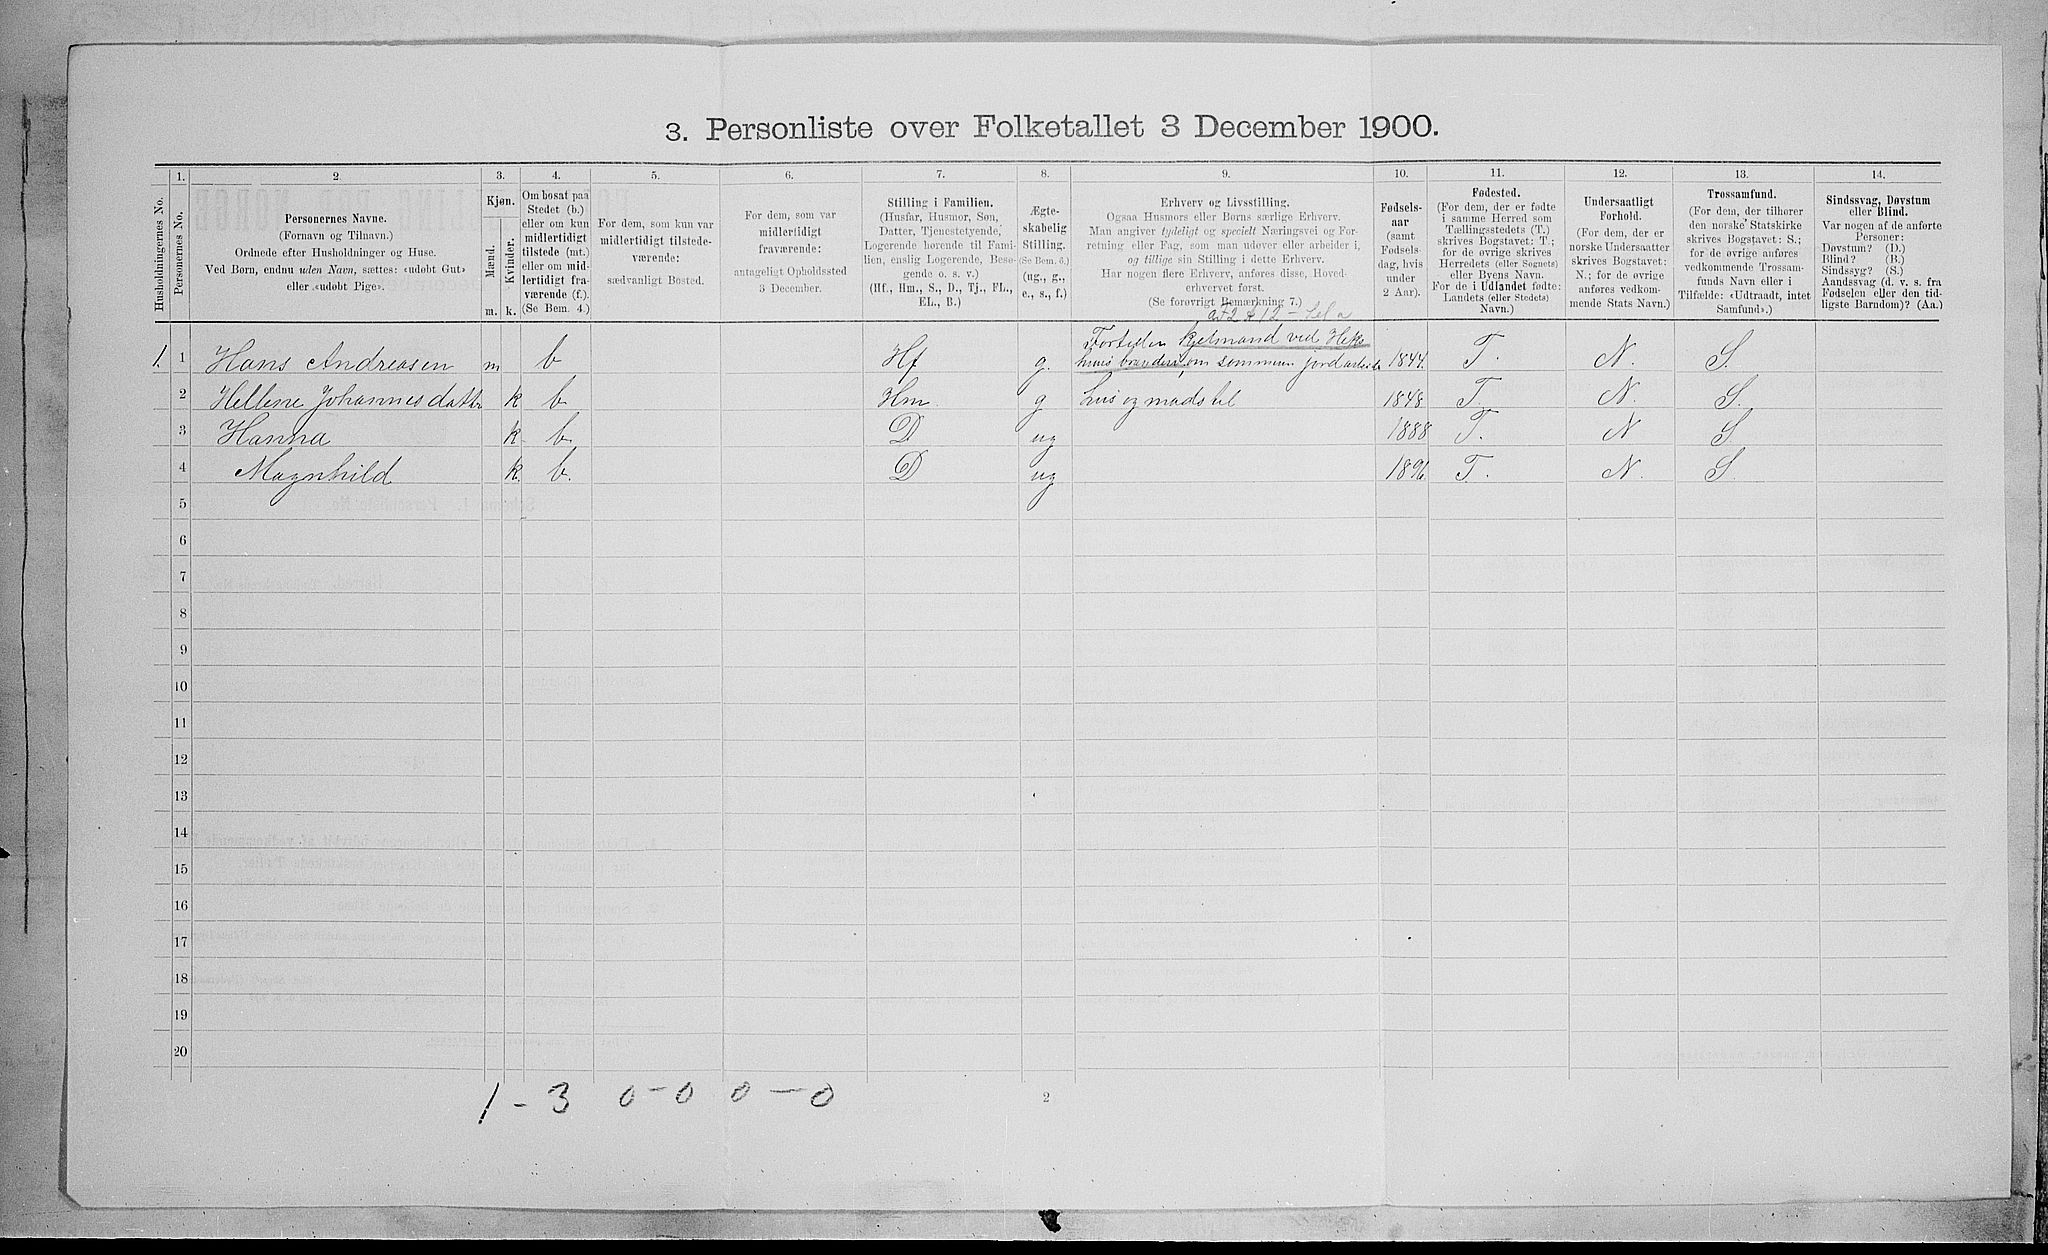 3. Personliste over Folketallet 3 December 1900.
Husholdningernes No.
1.
Personernes No.
2.
Personernes Navne.
(Fornavn og Tilnavn.)
Ordnede efter Husholdninger og Huse.
Ved Børn, endnu uden Navn, sættes: «udøbt Gut»
eller «udøbt Pige».
3.
Kjøn.
Mænd.
Kvinder.
m. k.
4.
Om bosat paa
Stedet (b.)
eller om kun
midlertidigt
tilstede (mt.)
eller om mid-
lertidigt fra-
værende (f.).
(Se Bem. 4.)
5.
For dem, som kun var
midlertidigt tilstede-
værende:
sædvanligt Bosted.
6.
For dem, som var
midlertidigt
fraværende:
antageligt Opholdssted
3 December.
7.
Stilling i Familien.
(Husfar, Husmor, Søn,
Datter, Tjenestetyende,
Logerende hørende til Fami-
lien, enslig Logerende, Besø-
gende o. s. v.)
(Hf., Hm., S., D., Tj., FL.,
EL., B.)
8.
Ægte-
skabelig
Stilling.
(Se Bem. 6.)
(ug., g.,
e., s., f.)
9.
Erhverv og Livsstilling.
Ogsaa Husmors eller Børns særlige Erhverv.
Man angiver tydeligt og specielt Næringsvei og For-
retning eller Fag, som man udøver eller arbeider i,
og tillige sin Stilling i dette Erhverv.
Har nogen flere Erhverv, anføres disse, Hoved-
erhvervet først.
(Se forøvrigt Bemerkning 7.)
10.
Fødsels-
aar
(samt
Fødsels-
dag, hvis
under
2 Aar).
11.
Fødested.
(For dem, der er fødte
i samme Herred som
Tællingsstedets (T.)
skrives Bogstavet: T.;
for de øvrige skrives
Herredets (eller Sognets)
eller Byens Navn.
For de i Udlandet fødte:
Landets (eller Stedets)
Navn.)
12.
Undersaatligt
Forhold.
(For dem, der er
norske Undersaatter
skrives Bogstavet:
N.; for de øvrige
anføres vedkom-
mende Stats Navn.)
13.
Trossamfund.
(For dem, der tilhører
den norske Statskirke
skrives Bogstavet: S.;
for de øvrige anføres
vedkommende Trossam-
funds Navn eller i
Tilfælde: «Udtraadt, intet
Samfund».)
14.
Sindssvag, Døvstum
eller Blind.
Var nogen af de anførte
Personer:
Døvstum? (D.)
Blind? (B.)
Sindssyg? (S.)
Aandssvag (d. v. s. fra
Fødselen eller den tid-
ligste Barndom)? (Aa.)
Fortiden hjelmand ved
1. 1 Hans Andreasen m b Hf g. om sommeren 1844. T. N. S.
2 Hellene Johannesdatter k b. Hm. g Hus og madstel 1848 T. N. S.
3 Hanna k. b. D ug 1888 T. N S.
4 Magnhild k. b. D ug 1896. T. N. S.
5
6
7
8
9
10
11
12
13
14
15
16
17
18
19
20
1 - 3 0 - 0 0 - 0
2